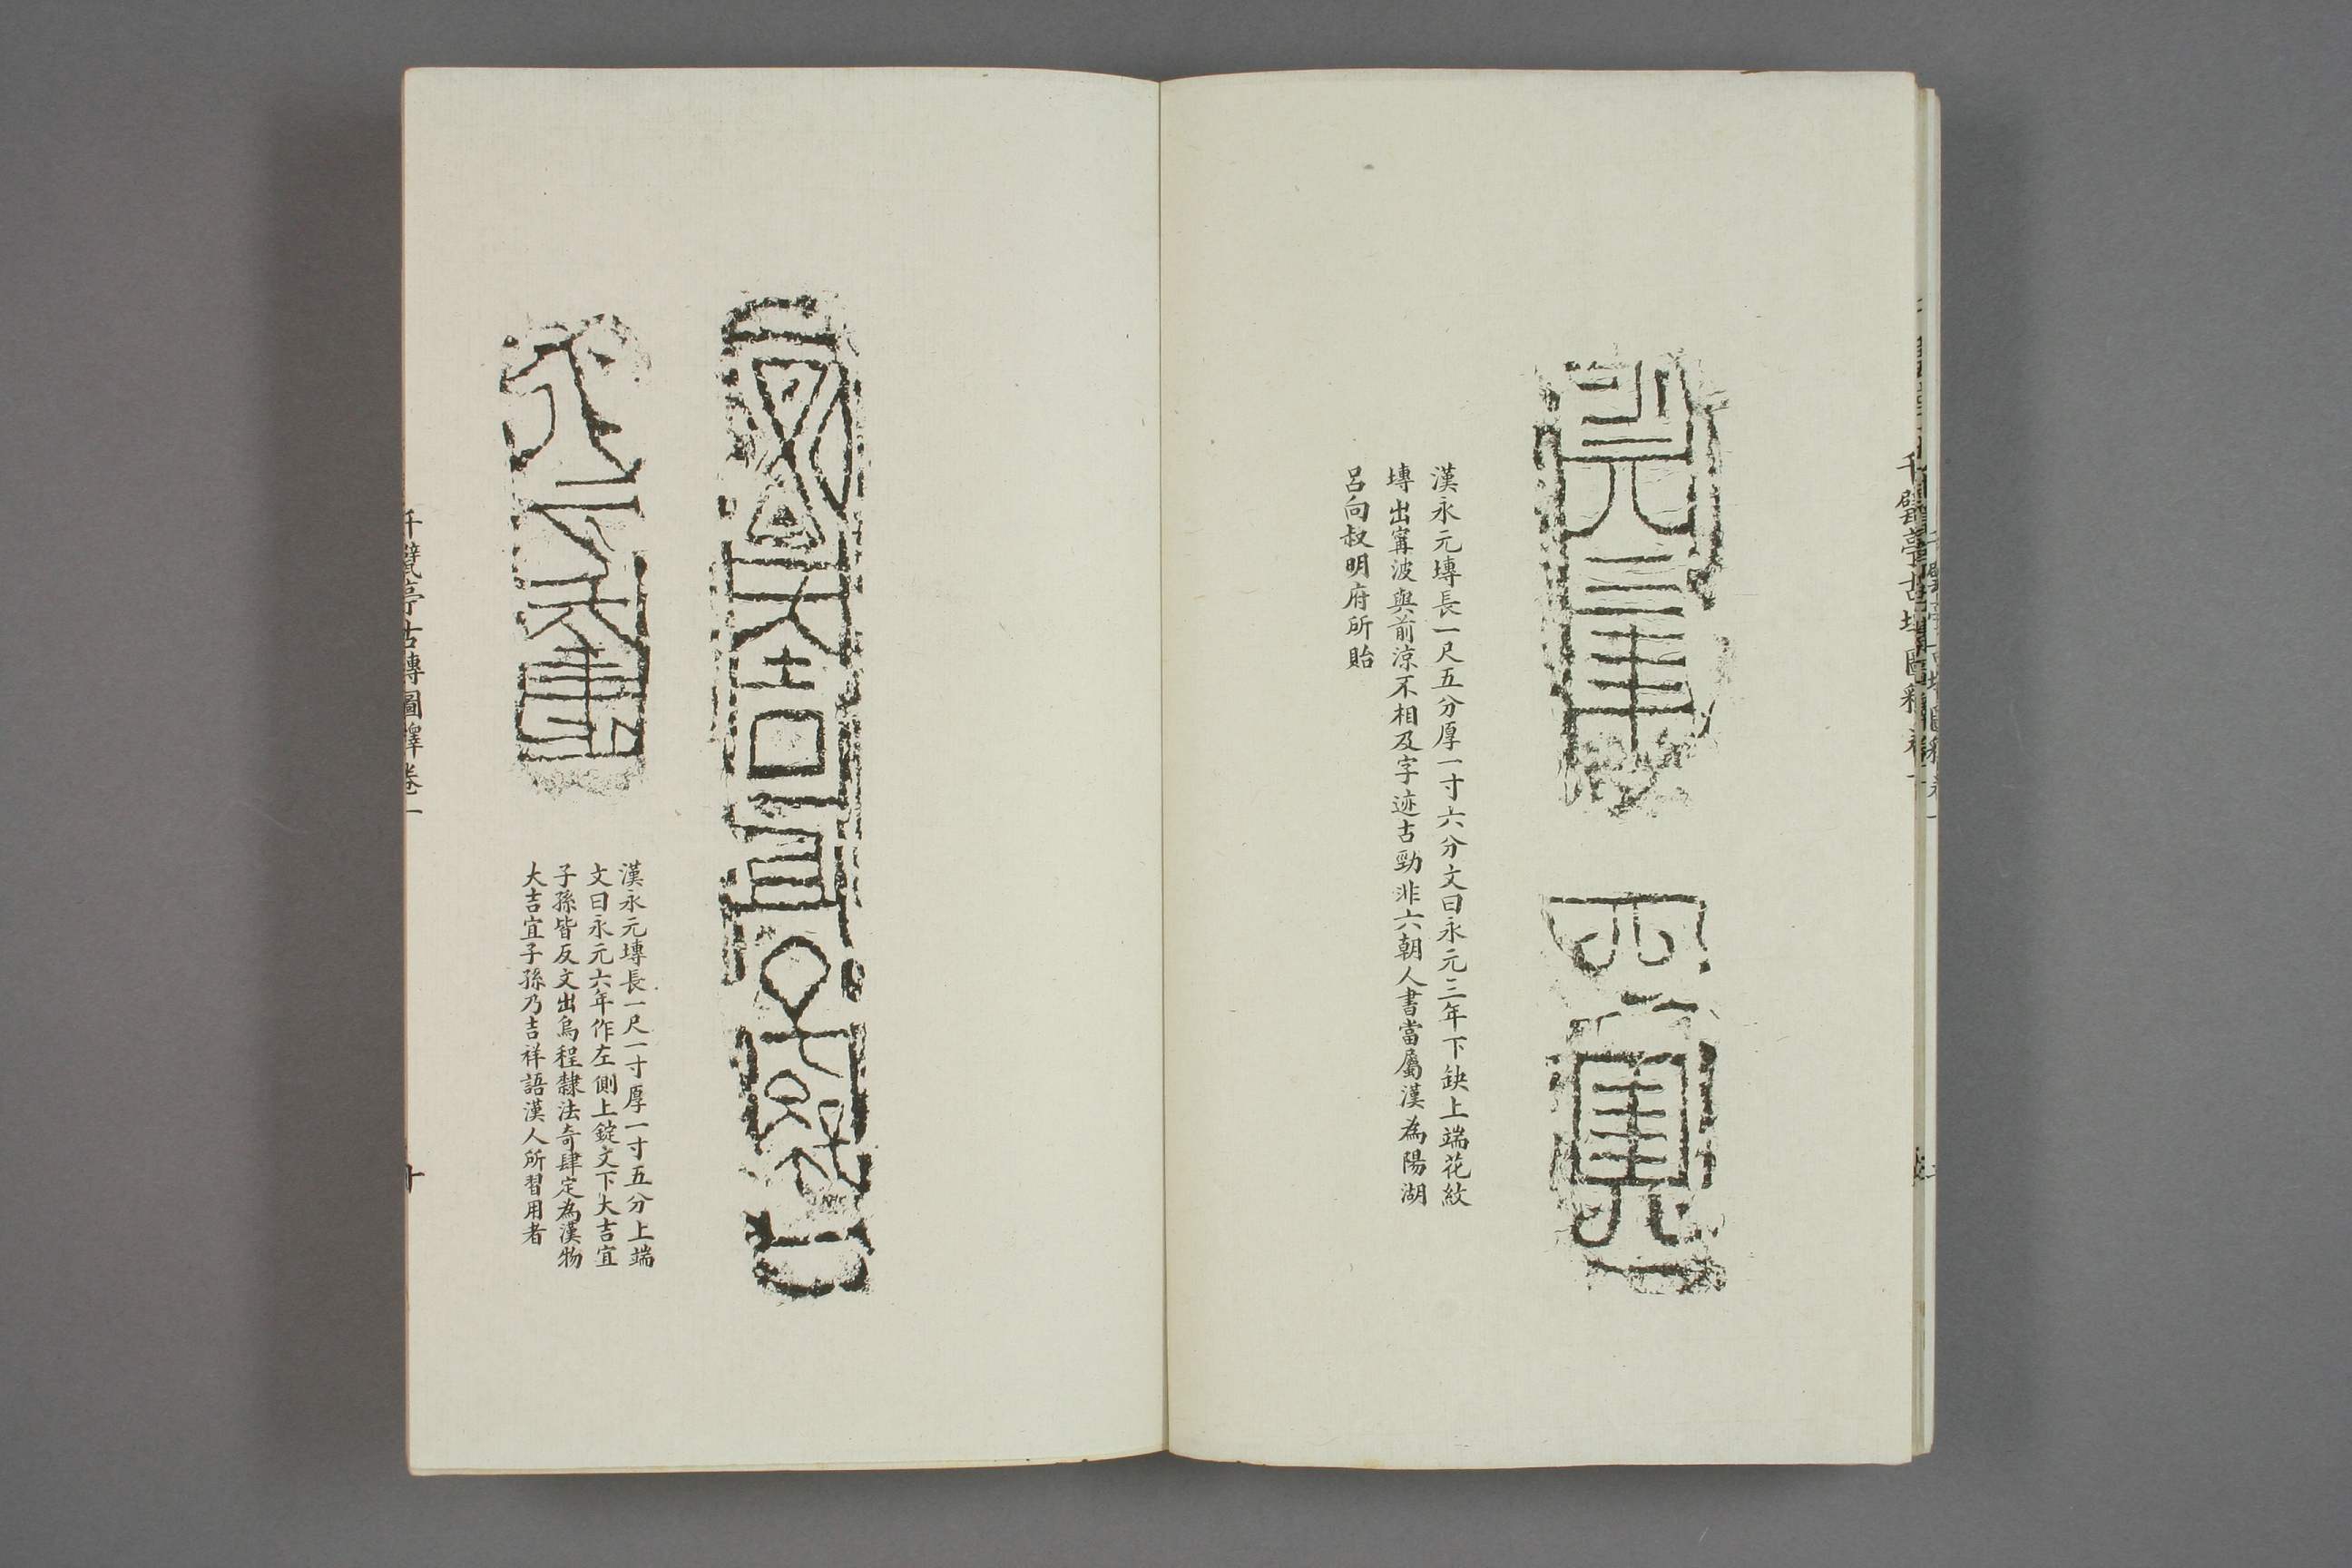 漢永元塼長一尺五分厚一寸六分文曰永元三年下缺上端花紋
塼出甯波與前涼不相及字迹古勁非六朝人書當屬漢為陽湖
呂向叔明府所貽
大吉宜子
漢永元塼長一尺一寸厚一寸五分上端
文曰永元六年作左側上錠文下大吉宜
子孫皆反文出烏程隸法奇肆定為漢物
大吉宜子孫乃吉祥語漢人所習用者
千甓亭古塼圖釋卷一
十